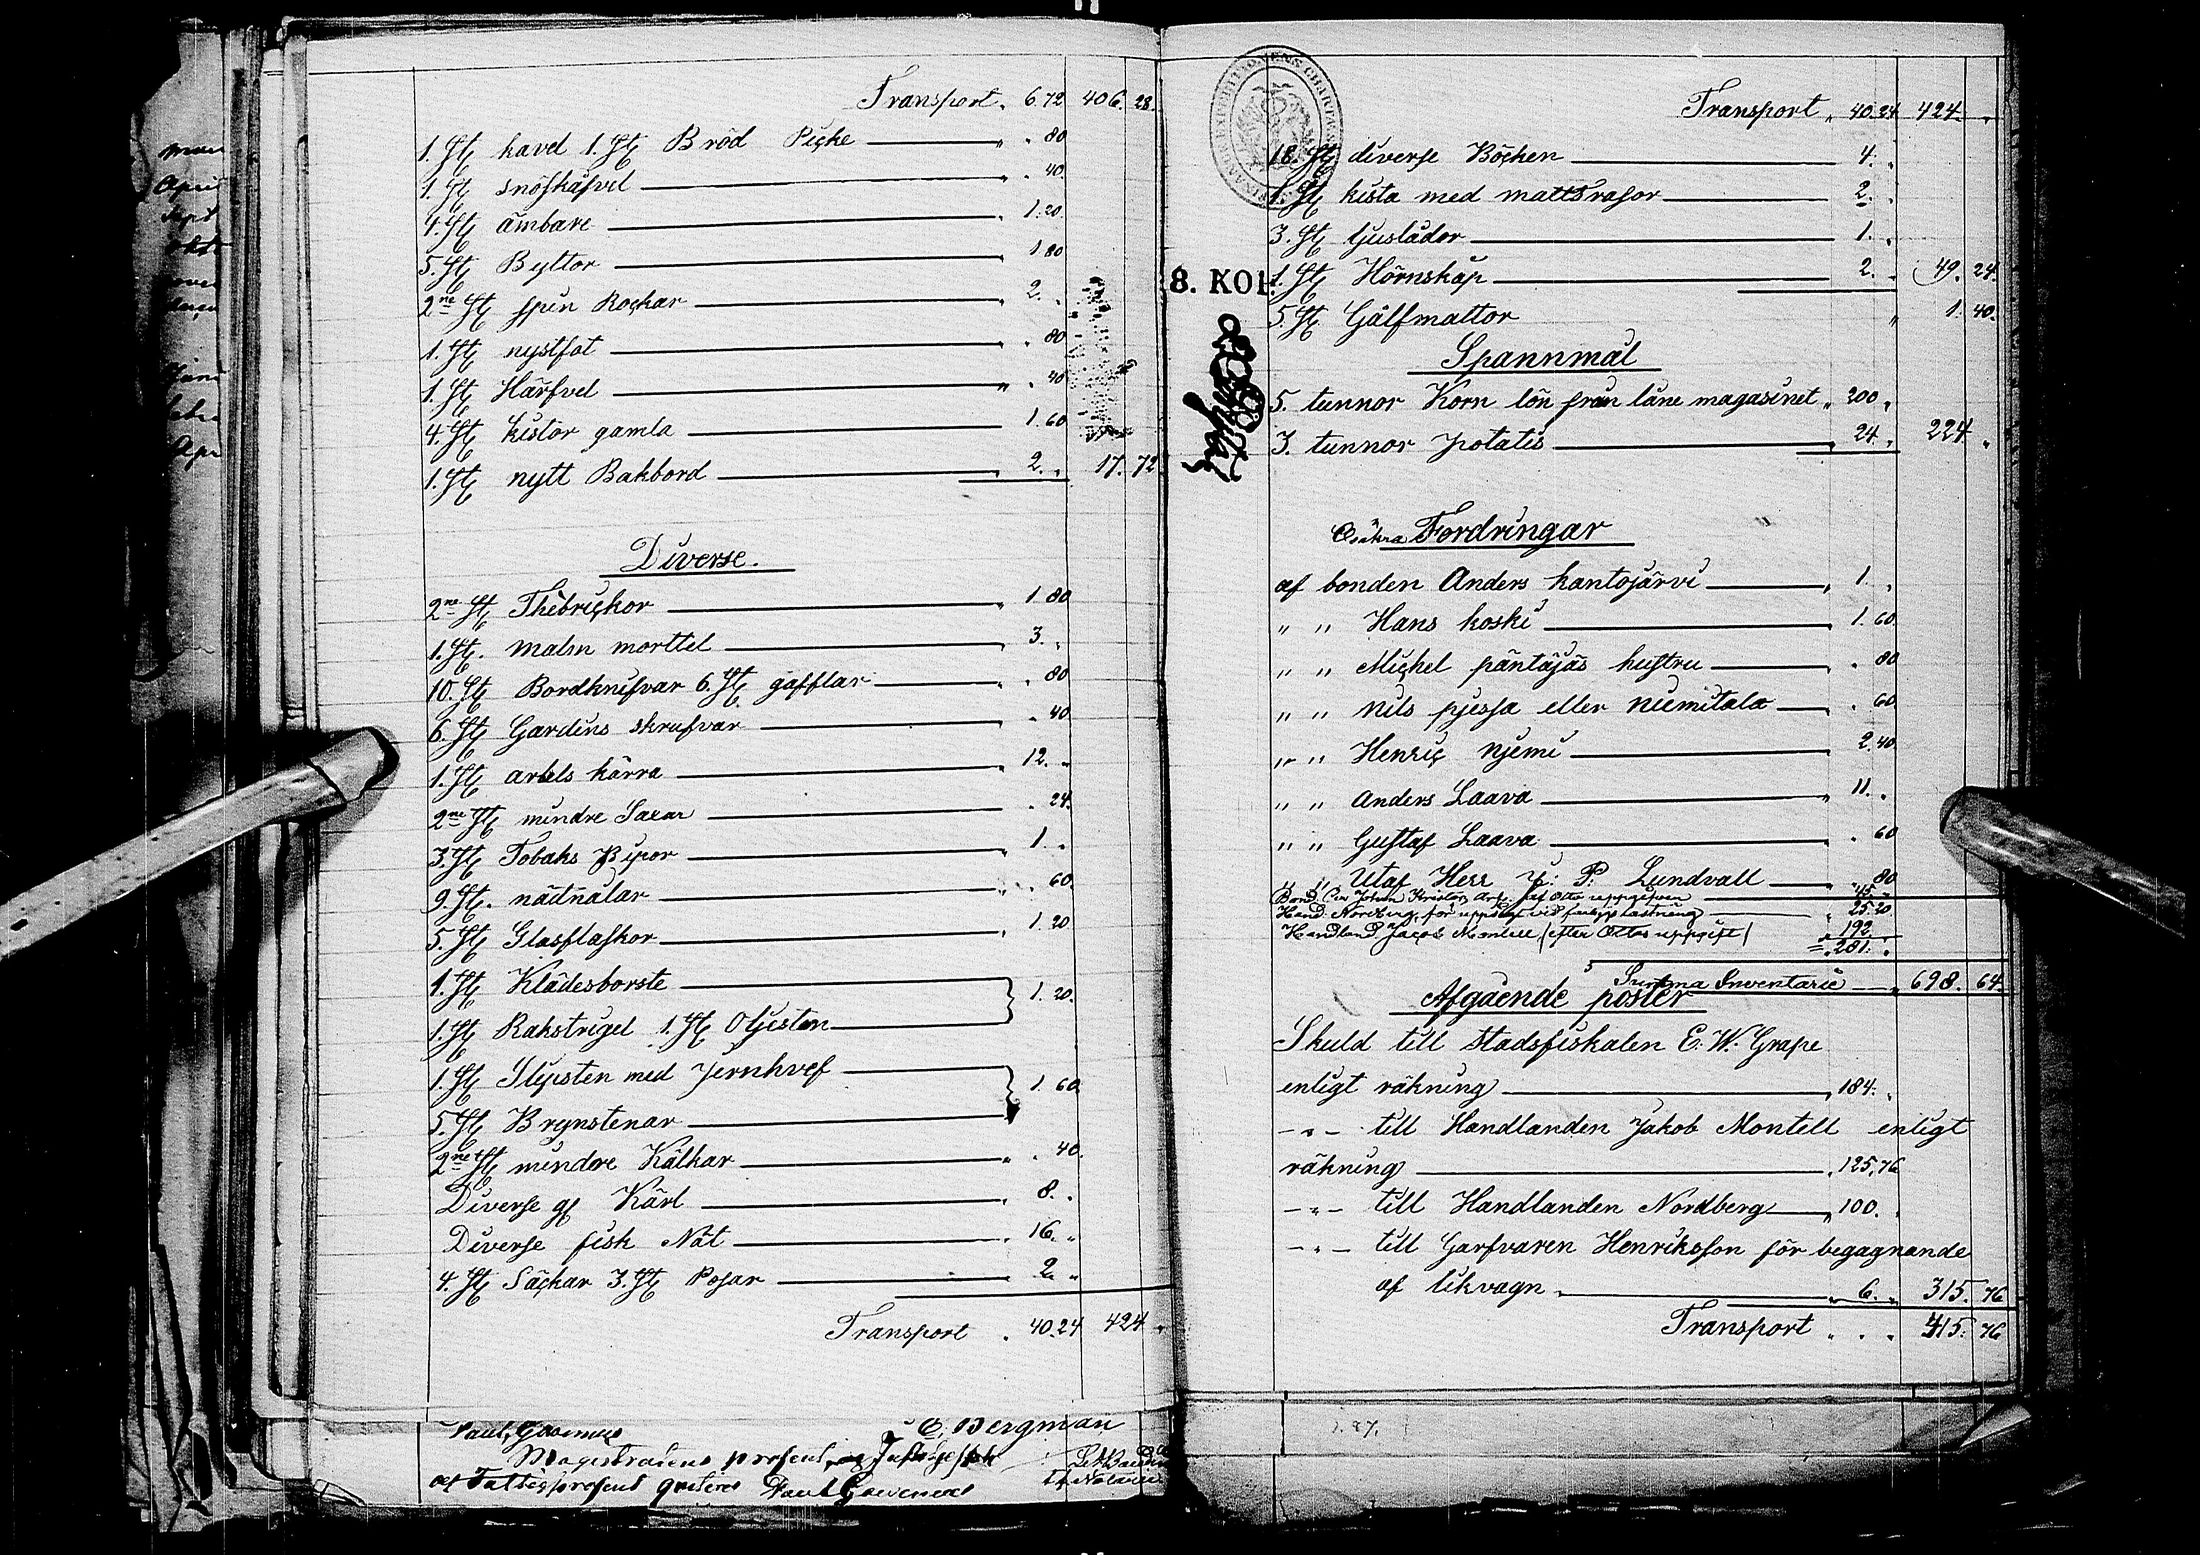 Transport. 6.72 406. 28.
1. St kavel 1. St Bröd Picke " . 80
1. St snöskåfvel " . 40.
4. St ämbare " 1.20.
5. St Byttor " 1 80
2ne St spin Rockar " 2. "
1. St nystfot " . 80
1. St Härfvel " . 40
4. St kistor gamla 1.60
1. St nytt Bakbord " 2. " 17. 72
Diverse.
2ne St Thebrickor " 1 80
1. St. malm morttel " 3. "
10. St Bordknifvar 6. St gafflar " . 80
6. St Gardins skrufvar " . 40
1. St arbets kärra 12. "
2ne St mindre Saxar . 24.
3. St Tobaks Pipor " 1. "
9. St. nätnålar " . 60.
5. St Glasflaskor " 1. 20
1. St Klädesborste
1. St Rakstrigel 1. St Oljesten 1. 20.
1. St Slipsten med Jernhvef
5. St Brynstenar 1. 60
2ne St mindre Kälkar " . 40.
Diverse gl Kärl " 8. "
Diverse fisk Nät " 16. "
4. St Säckar 3. St Påsar 2. "
Transport . 40.24 424 "
E. Bergman
Magistratens
Transport " 40.24 424. "
18. St diverse Böcken 4. "
1. St kista med mattsrasor 2. "
3. St ljuslådor 1. "
8. KO
1. St Hörnskåp 2. " 49. 24.
5. St Gålfmattor " 1. 40.
Spannmål
5. tunnor Korn lön från låne magasinet " 200 "
3. tunnor potatis " 24. " 224 "
Osäkra Fordringar
af bonden Anders kantojärvi " 1. "
" " Hans koski " 1. 60.
" " Mickel päntäjäs hustru " . 80
" " Nils pjessa eller niemitalo " . 60
" " Henric Njemi " 2. 40
" " Anders Laava " 11. "
" " Gustaf Laava " . 60
" " Utaf Herr P: Lundvall " . 80
Hand. Nordberg, för " 25.20
Handland Jacob Montell /efter Ottos uppgift/ " 192.
= 281. "
Summa Inventarie " 698. 64.
Afgående poster
Skuld till stadsfiskalen E. W. Grape
enligt räkning " 184. "
- " - till Handlanden Jakob Montell enligt
räkning " 125,76
- " - till Handlanden Nordberg " 100. "
- " - till Garfvaren Henriksson för begagnande
af likvagn " 6. " 315. 76
Transport " . " 415. 76